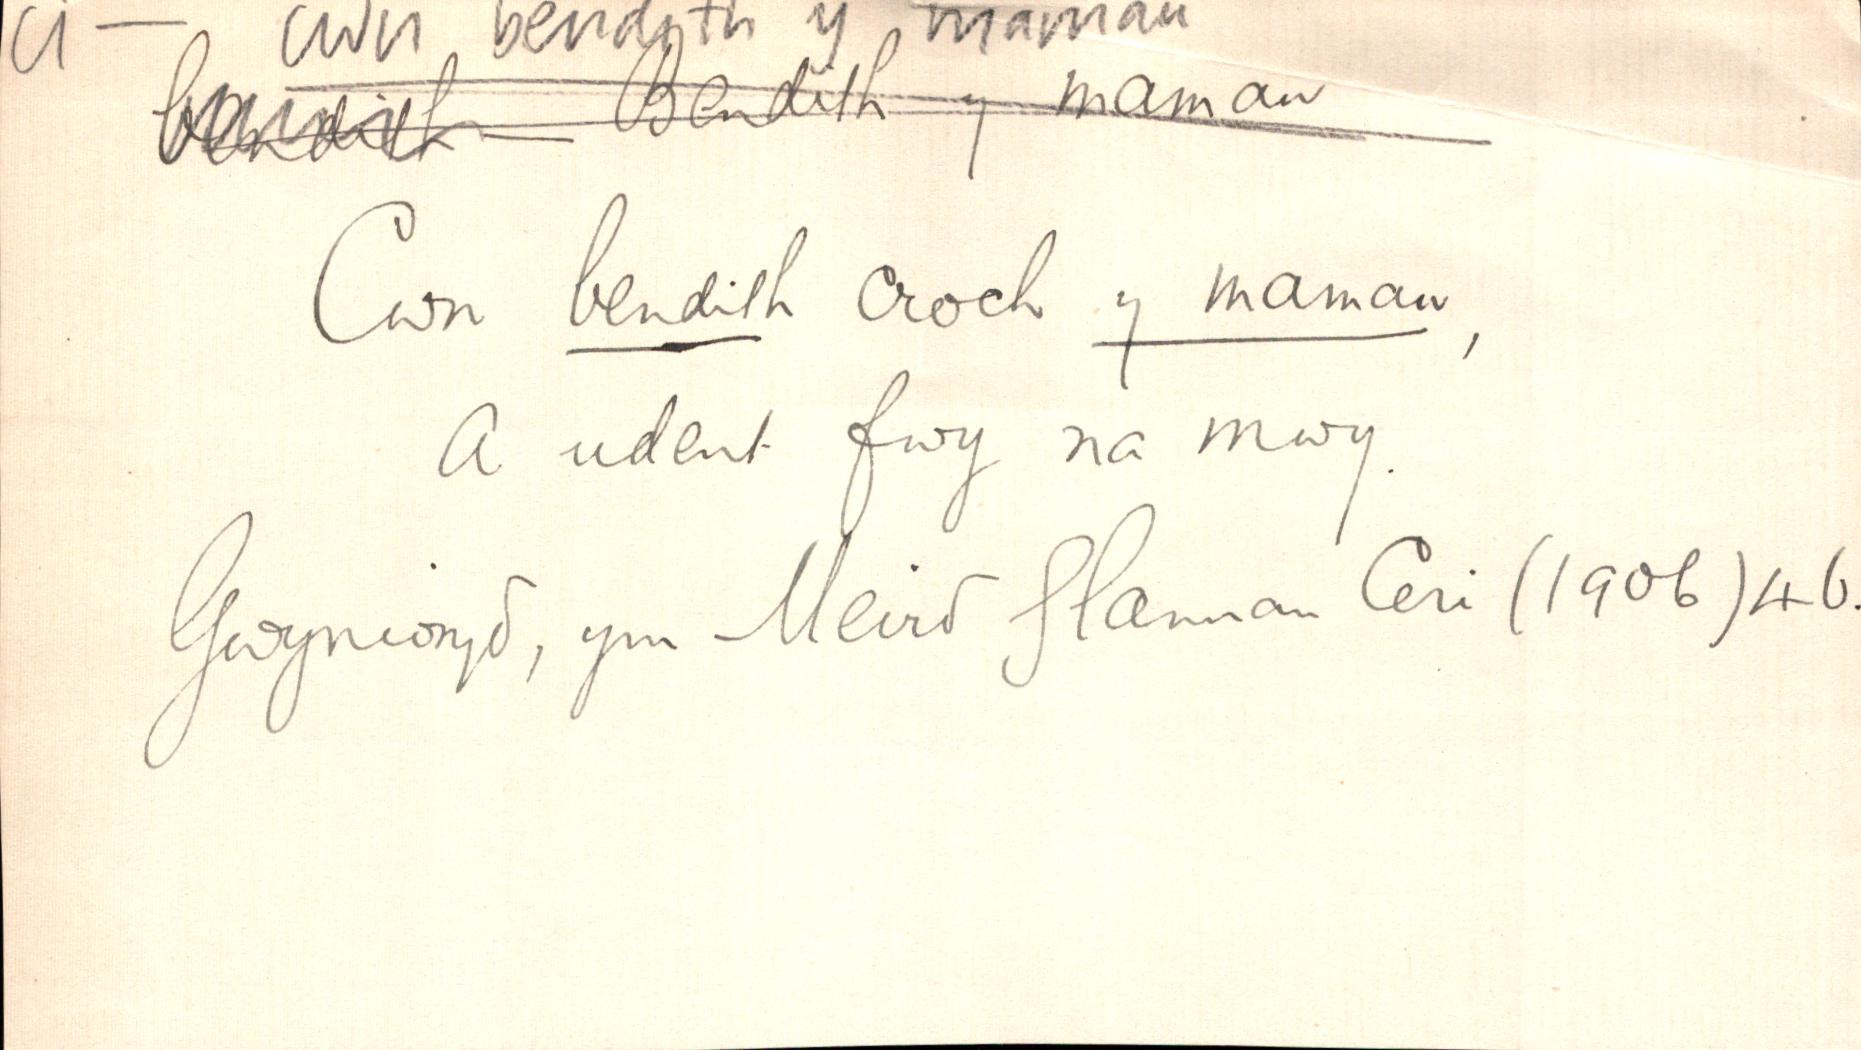 ci — cŵn bendith y mamau
bendith Bendith y mamau
Cwn bendith croch y mamau,
A udent fwy na mwy.
Gwynionyð, ym Meirð Glannau Ceri (1906) 46.